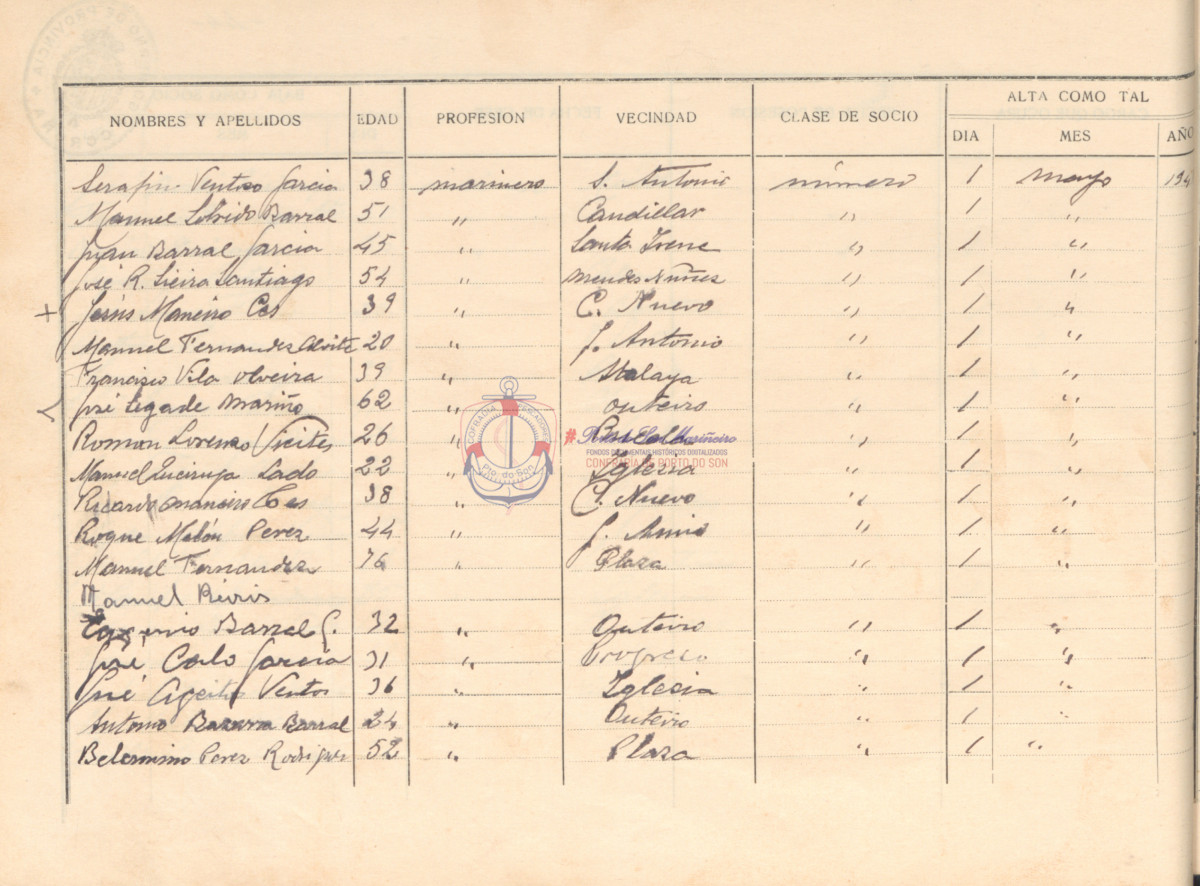 ALTA COMO TAL
NOMBRES Y APELLIDOS EDAD PROFESION VECINDAD CLASE DE SOCIO DIA MES AÑO
Serafin Ventoso Garcia 38 marinero S. Antonio número 1 mayo 194
Manuel Lobido Barral 51 " Caudillar " 1 "
Juan Barral Garcia 45 " Santa Irene " 1 "
José R. Lieira Santiago 54 " Mendes Nuñes " 1 "
+ Jesús Maneiro Ces 39 " C. Nuevo " 1 "
Manuel Fernandes 20 " J. Antonio " 1 "
Francisco Vila Olveira 39 " Atalaya " 1 "
José Legade Mariño 62 " Outeiro " 1 "
Roman Lorenzo Vieites 26 " " 1 "
Manuel Lado 22 " Iglesia " 1 "
Ricardo Maneiro Ces 38 " C. Nuevo " 1 "
Roque Melón Perez 44 " J. " 1 "
Manuel Fernandez 76 " Plaza " 1 "
Manuel Reiris
Eugenio Barral G. 32 " Outeiro " 1 "
José Carlo Garcia 31 " Progreso " 1 "
José Ageitos Ventos 36 " Iglesia " 1 "
Antonio Barral 24 " Outeiro " 1 "
Belermino Perez Rodrigues 52 " Plaza " 1 "
COFRADIA PESCADORES
Pto. do Son
FONDOS DOCUMENTAIS HISTÓRICOS DIXITALIZADOS
CONFRARÍA DE PORTO DO SON